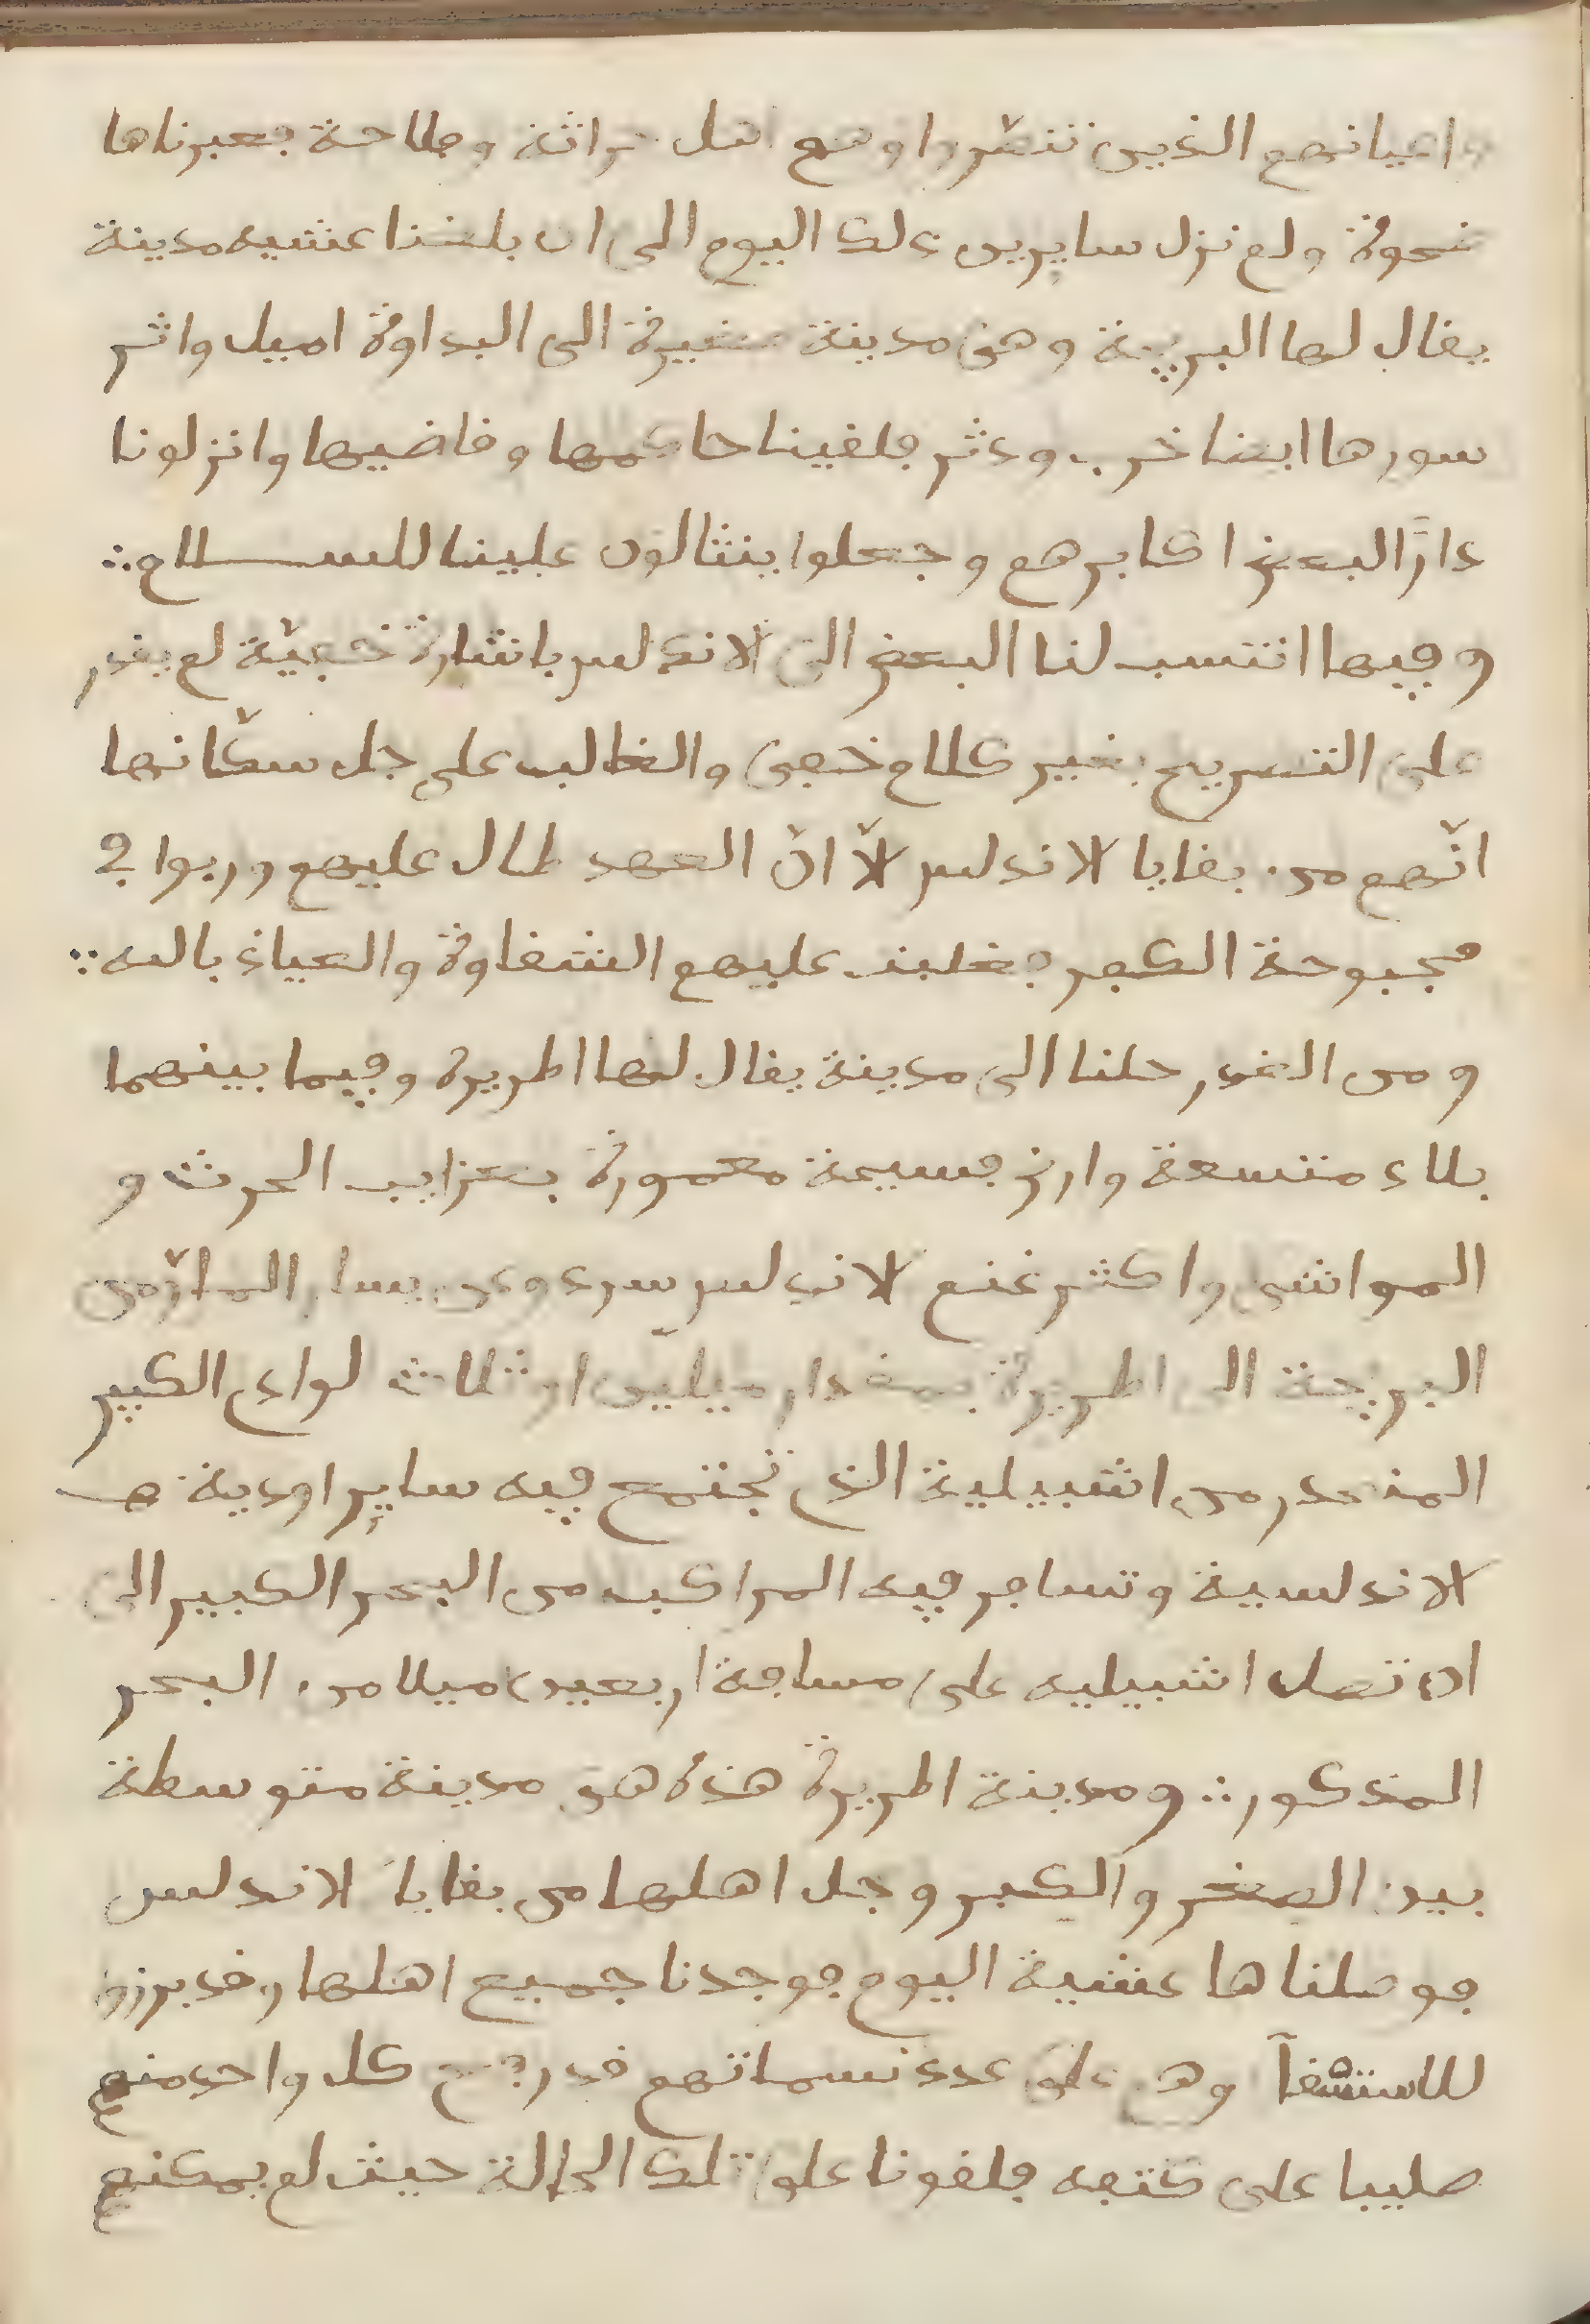 واعيانهم الذين تنصّروا وهم اهل حراثة وفلاحة فعبرناها
ضحوة ولم نزل سايرين ذلك اليوم الى ان بلغنا عشيه مدينة
يقال لها البريجة وهي مدينة صغيرة الى البداوة اميل واثر
سورها ايضا خرب ودثر فلقينا حاكمها وقاضيها وانزلونا
دارًا لبعض اكابرهم وجعلوا ينثالون علينا للسلام ∴
وفيها انتسب لنا البعض الى الاندلس باشارة خفيّة لم يقدر
على التصريح بغير كلام خفي والغالب على جل سكّانها
انّهم من بقايا الاندلس الاّ انّ العهد طال عليهم وربوا في
بحبوحة الكفر فغلبت عليهم الشقاوة والعياذ بالله ∴
ومن الغد رحلنا الى مدينة يقال لها اطريرة وفيما بينهما
بلاد متسعة وارض فسيحة معمورة بعزايب الحرث و
المواشي واكثر غنم الاندلس سود وعن يسار المارّ من
البريجة الى اطريرة بمقدار ميلين او ثلاث الوادي الكبير
المنحدر من اشبيلية الذي تجتمع فيه ساير اودية
الاندلسية وتسافر فيه المراكب من البحر الكبير الى
ان تصل اشبيليه على مسافة اربعين ميلا من البحر
المذكور ∴ ومدينة اطريرة هذه هي مدينة متوسطة
بين الصغر والكبر وجل اهلها من بقايا الاندلس
فوصلناها عشية اليوم فوجدنا جميع اهلها وقد برزوا
للاستسقآ وهم على عدد نسماتهم قد رفع كل واحد منهم
صليبا على كتفه فلقونا على تلك الحالة حيث لم يمكنهم